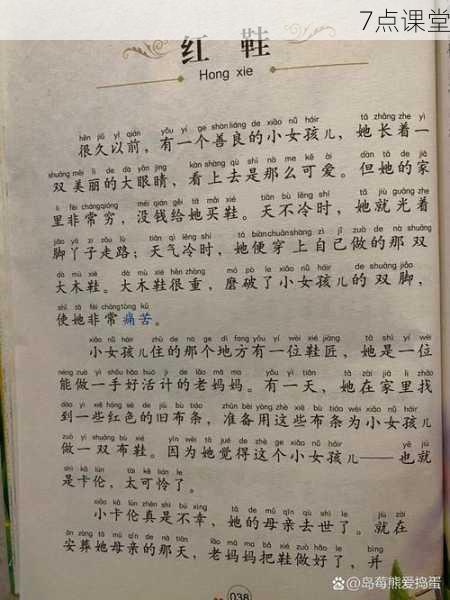 7点课堂
红 鞋
Hong xie
hěn jiǔ yǐ qián yǒu yí ge shàn liáng de xiǎo nǚ háir tā zhǎng zhe yì
很久以前，有一个善良的小女孩儿，她长着一
shuāng měi lì de dà yǎn jing kàn shàng qù shì nà me kě ài dàn tā de jiā
双美丽的大眼睛，看上去是那么可爱。但她的家
lǐ fēi cháng qióng méi qián gěi tā mǎi xié tiān bù lěng shí tā jiù guāng zhe
里非常穷，没钱给她买鞋。天不冷时，她就光着
jiǎo yā zi zǒu lù tiān qì lěng shí tā biàn chuān shàng zì jǐ zuò de nà shuāng
脚丫子走路；天气冷时，她便穿上自己做的那双
dà mù xié dà mù xié hěn zhòng mó pò le xiǎo nǚ háir de shuāng jiǎo
大木鞋。大木鞋很重，磨破了小女孩儿的双脚，
shǐ tā fēi cháng tòng kǔ
使她非常痛苦。
xiǎo nǚ háir zhù de nà ge dì fang yǒu yí wèi xié jiàng tā shì yí wèi
小女孩儿住的那个地方有一位鞋匠，她是一位
néng zuò yì shǒu hǎo huó jì de lǎo mā ma yǒu yì tiān tā zài jiā lǐ zhǎo
能做一手好活计的老妈妈。有一天，她在家里找
dào yì xiē hóng sè de jiù bù tiáo zhǔn bèi yòng zhè xiē bù tiáo wèi xiǎo nǚ háir
到一些红色的旧布条，准备用这些布条为小女孩儿
zuò yì shuāng bù xié yīn wèi tā jué de zhè ge xiǎo nǚ háir yě jiù
做一双布鞋。因为她觉得这个小女孩儿——也就
shì kǎ lún tài kě lián le
是卡伦，太可怜了。
xiǎo kǎ lún zhēn shì bú xìng tā de mǔ qīn qù shì le jiù zài
小卡伦真是不幸，她的母亲去世了。就在
ān zàng tā mǔ qīn de nà tiān lǎo mā ma bǎ xié zuò hǎo le bìng
安葬她母亲的那天，老妈妈把鞋做好了，并
038
知乎 @岛莓熊爱捣蛋